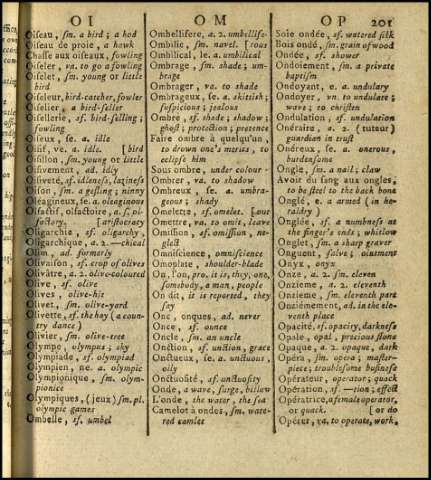 OI
OM
OP 201
Oiseau, sm. a bird; a hod
Oiseau de proie, a hawk
Chasse aux oiseaux, fowling
Oiseler, va. to go a fowling
Oiselet, sm. young or little
bird
Oiseleur, bird-catcher, fowler
Oiselier, a bird-seller
Oisellerie, sf. bird-selling;
fowling
Oiseux, se. a. idle
Oisif, ve. a. idle. [bird
Oisillon, sm. young or little
Oisivement, ad. idly
Oisiveté, sf. idleness, laziness
Oison, sm. a gesling; ninny
Oleagineux, se. a. oleaginous
Olfactif, olfactoire, a. f. ol-
factory,
Oligarchie, sf. oligarchy,
Oligarchique, a. 2. —chical
Olim, ad. formerly
Olivaison, sf. crop of olives
Olivâtre, a. 2. olive-coloured
Olive, sf. olive
Olives, olive-bit
Olivet, sm. olive-yard
Olivette, sf. the hay (a coun-
try dance)
Olivier, sm. olive-tree
Olympe, olympus; sky
Olympiade, sf. olympiad
Olympien, ne. a. olympic
Olympionique, sm. olym-
pionice
Olympiques, (jeux) sm. pl.
olympic games
Ombelle, sf. umbel
Ombellifere, a. 2. umbellife-
Ombilic, sm. navel. [rous
Ombilical, le. a. umbilical
Ombrage, sm. shade; um-
brage
Ombrager, va. to shade
Ombrageux, se. a. skittish;
suspicious; jealous
Ombre, sf. shade; shadow;
ghost; protection; pretence
Faire ombre à quelqu'un,
to drown one's merits, to
eclipse him
Sous ombre, under colour
Ombrer, va. to shadow
Ombreux, se. a. umbra-
geous; shady
Omelette, sf. omelet. [out
Omettre, va. to omit, leave
Omission, sf. omission, ne-
glect
Omniscience, omniscience
Omoplate, shoulder-blade
On, l'on, pro. it is, they, one,
somebody, a man, people
On dit, it is reported, they
say
Onc, onques, ad. never
Once, sf. ounce
Oncle, sm. an uncle
Onction, sf. unction, grace
Onctueux, se. a. unctuous,
oily
Onctuosité, sf. unctuosity
Onde, a wave, surge, billow
L'onde, the water, the sea
Camelot à ondes, sm. wate-
red camlet
Soie ondée, sf. watered silk
Bois ondé, sm. grain of wood
Ondée, sf. shower
Ondoiement, sm. a private
baptism
Ondoyant, e. a. undulary
Ondoyer, vn. to undulate;
wave; to christen
Ondulation, sf. undulation
Onéraire, a. 2. (tuteur)
guardian in trust
Onéreux, se. a. onerous,
burdensome
Ongle, sm. a nail; claw
Avoir du sang aux ongles,
to be steel to the back bone
Onglé, e. a armed (in he-
raldry)
Onglée, sf. a numbness at
the finger's ends; whitlow
Onglet, sm. a sharp graver
Onguent, salve; ointment
Onyx, onyx
Onze, a. 2. sm. eleven
Onzieme, a. 2. eleventh
Onzieme, sm. eleventh part
Onziémement, ad. in the ele-
venth place
Opacité, sf. opacity, darkness
Opale, opal, precious stone
Opaque, a. 2. opaque, dark
Opéra, sm. opera; master-
piece; troublesome business
Opérateur, operator; quack
Opération, sf. —tion; effect
Opératrice, a female operator,
or quack. [or do
Opérer, va. to operate, work,